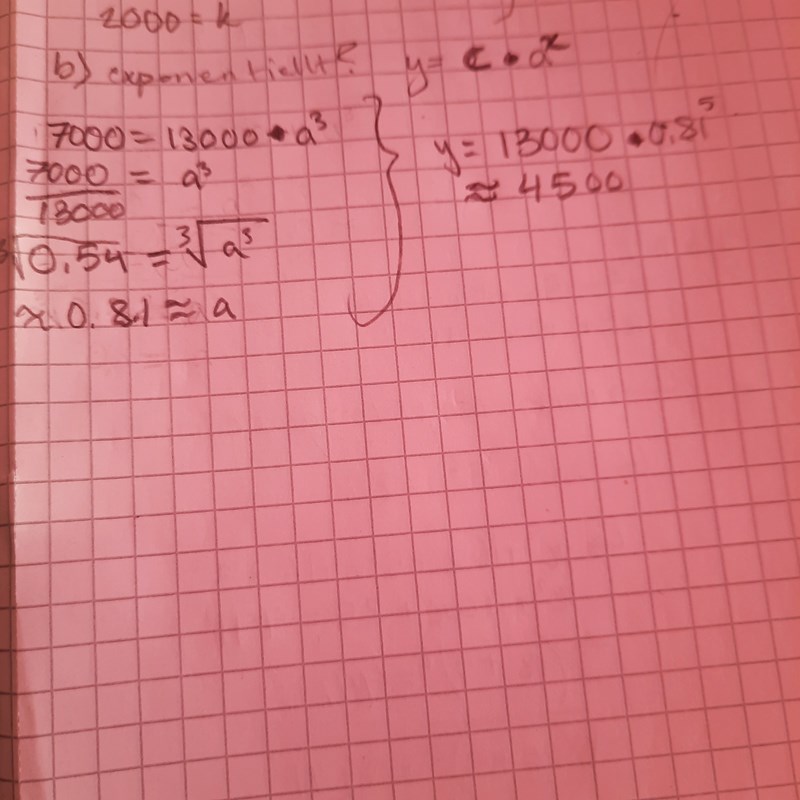 2000 = k
b) exponentiellt? y = C · a^x
7000 = 13000 · a³
7000/13000 = a³
³√0.54 = ³√a³
≈ 0.81 ≈ a
y = 13000 · 0.81⁵
≈ 4500